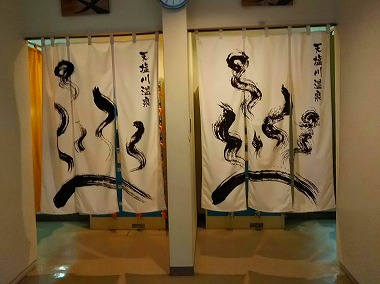 天塩川温泉
天塩川温泉